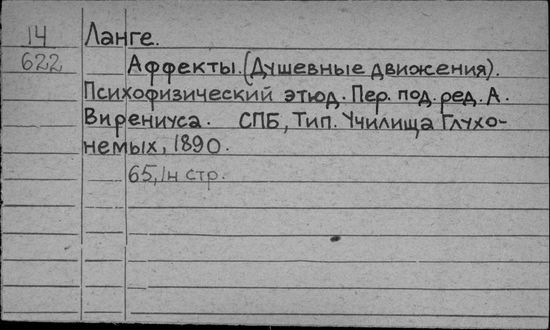 14 Ланге.
622 Аффекты. (Душевные движения).
Психофизический этюд. Пер. под. ред. А.
Вирениуса. СПБ, Тип. Училища Глухо-
немых, 1890.
65, 1н стр.